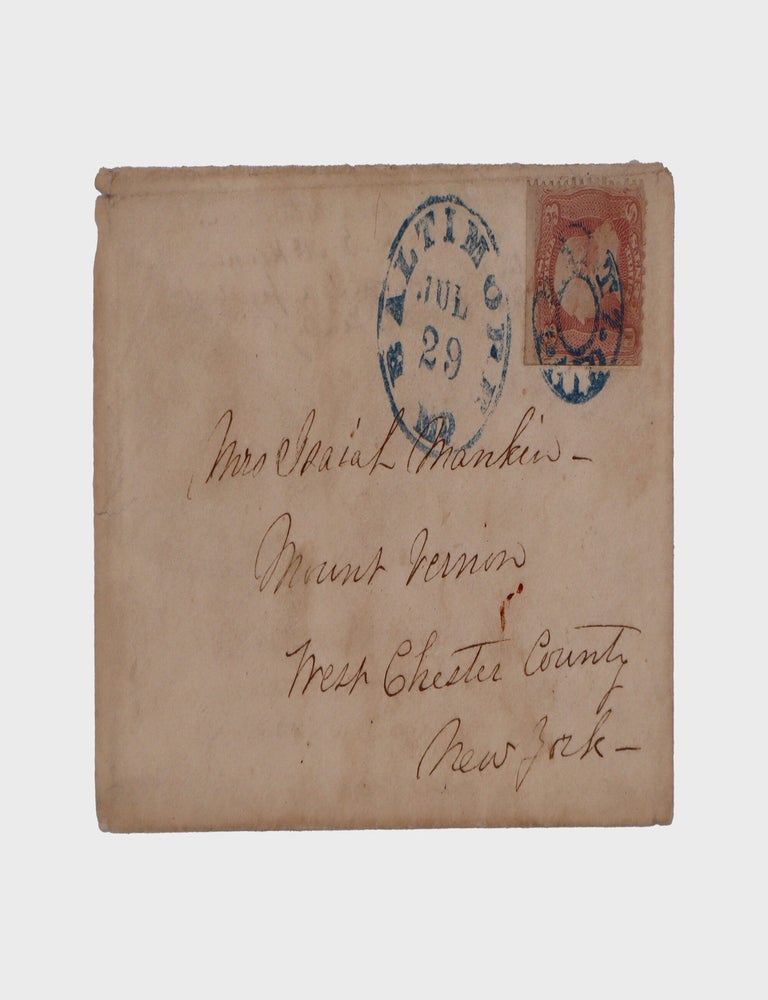 BALTIMORE
JUL
29
MD
3 3
Mrs Isaiah Mankin -
Mount Vernon
West Chester County
New York -